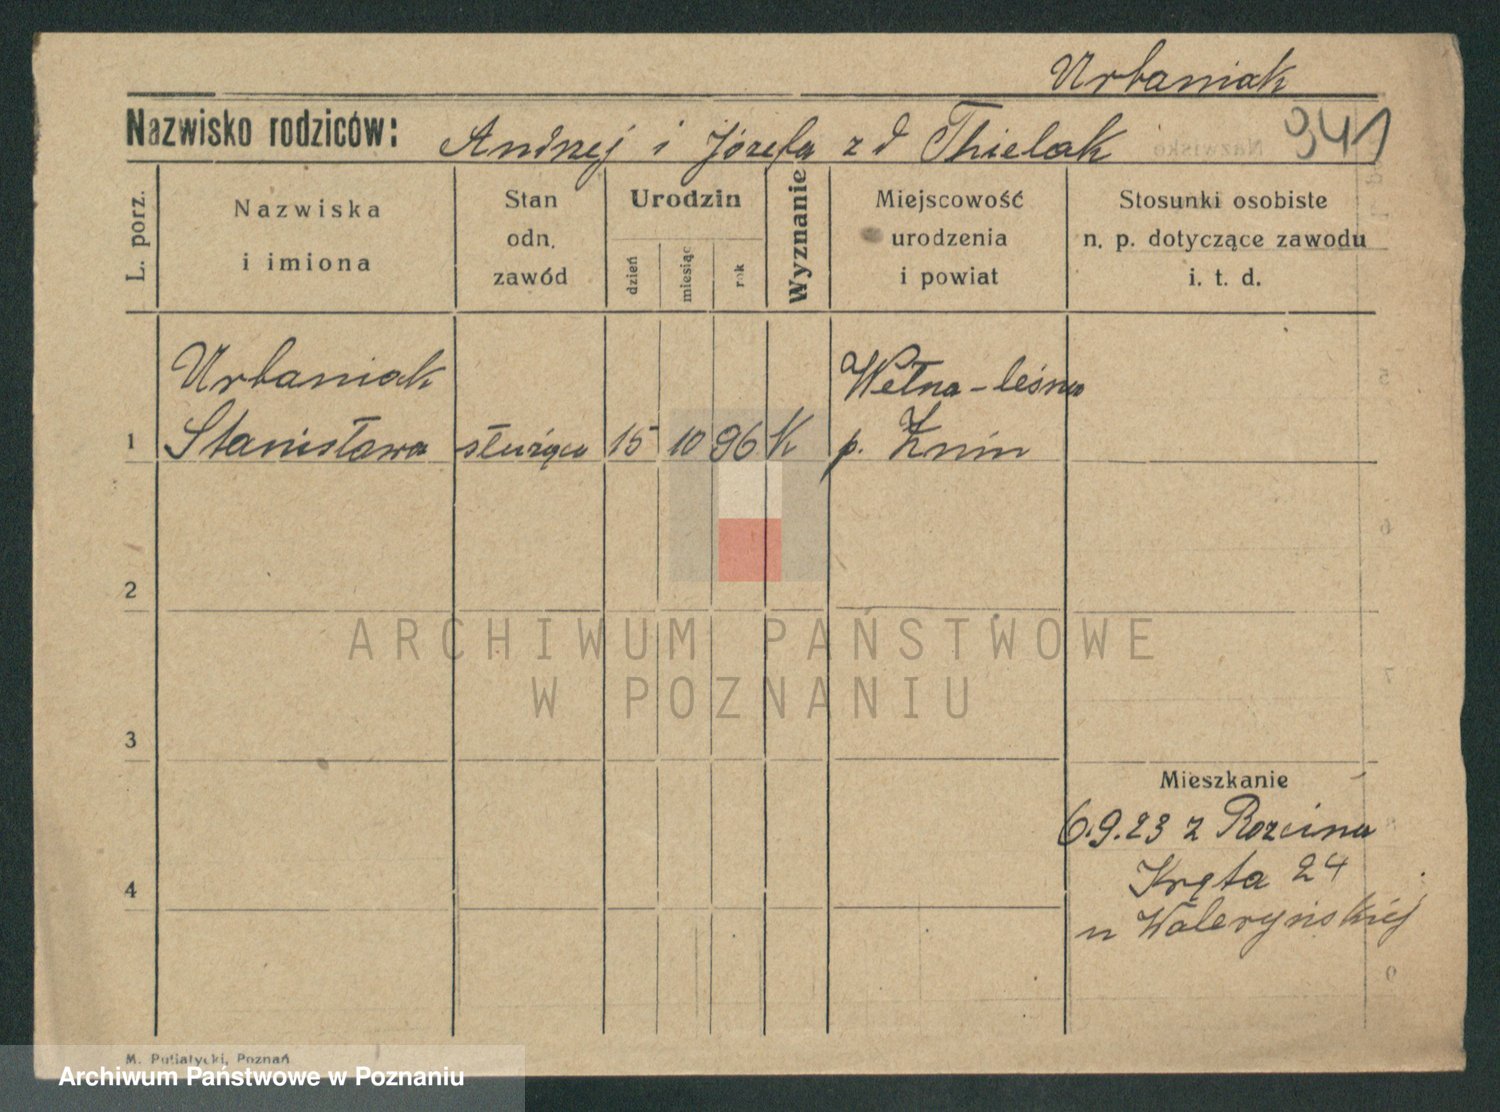 Urbaniak
Nazwisko rodziców: Andrzej i Józefa z d Thielak
941
L. porz.
Nazwiska
i imiona
Stan
odn.
zawód
Urodzin
dzień
miesiąc
rok
Wyznanie
Miejscowość
urodzenia
i powiat
Stosunki osobiste
n. p. dotyczące zawodu
i. t. d.
Urbaniak Wełna-leśna
1 Stanisława służąca 15 10 96 K p. Żnin
2
ARCHIWUM PAŃSTWOWE
W POZNANIU
3
Mieszkanie
6.9.23 z
Kręta 24
4
u Waleryńskiej
M. Putiatycki, Poznań
Archiwum Państwowe w Poznaniu